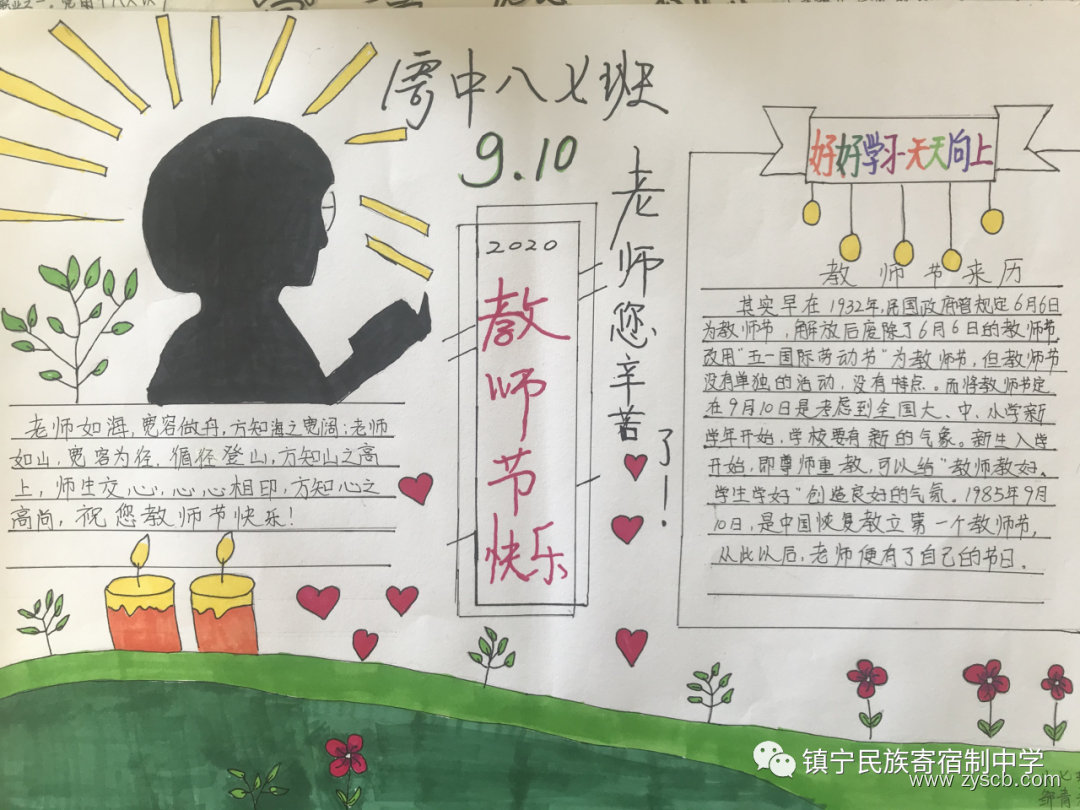 中八七班
9.10
2020
教师节快乐
老师您辛苦了!
好好学习天天向上
教师节来历
其实早在1932年,民国政府曾规定6月6日
为教师节,解放后废除了6月6日的教师节
改用"五一国际劳动节"为教师节,但教师节
没有单独的活动,没有特点。而将教师节定
在9月10日是考虑到全国大、中、小学新
学年开始,学校要有新的气象。新生入学
开始,即尊师重教,可以给"教师教好、
学生学好"创造良好的气氛。1985年9月
10日,是中国恢复教立第一个教师节,
从此以后,老师便有了自己的节日。
老师如海,宽容做舟,方知海之宽阔;老师
如山,宽容为径,循径登山,方知山之高
上,师生交心,心心相印,方知心之
高尚,祝您教师节快乐!
镇宁民族寄宿制中学
www.zyscb.com